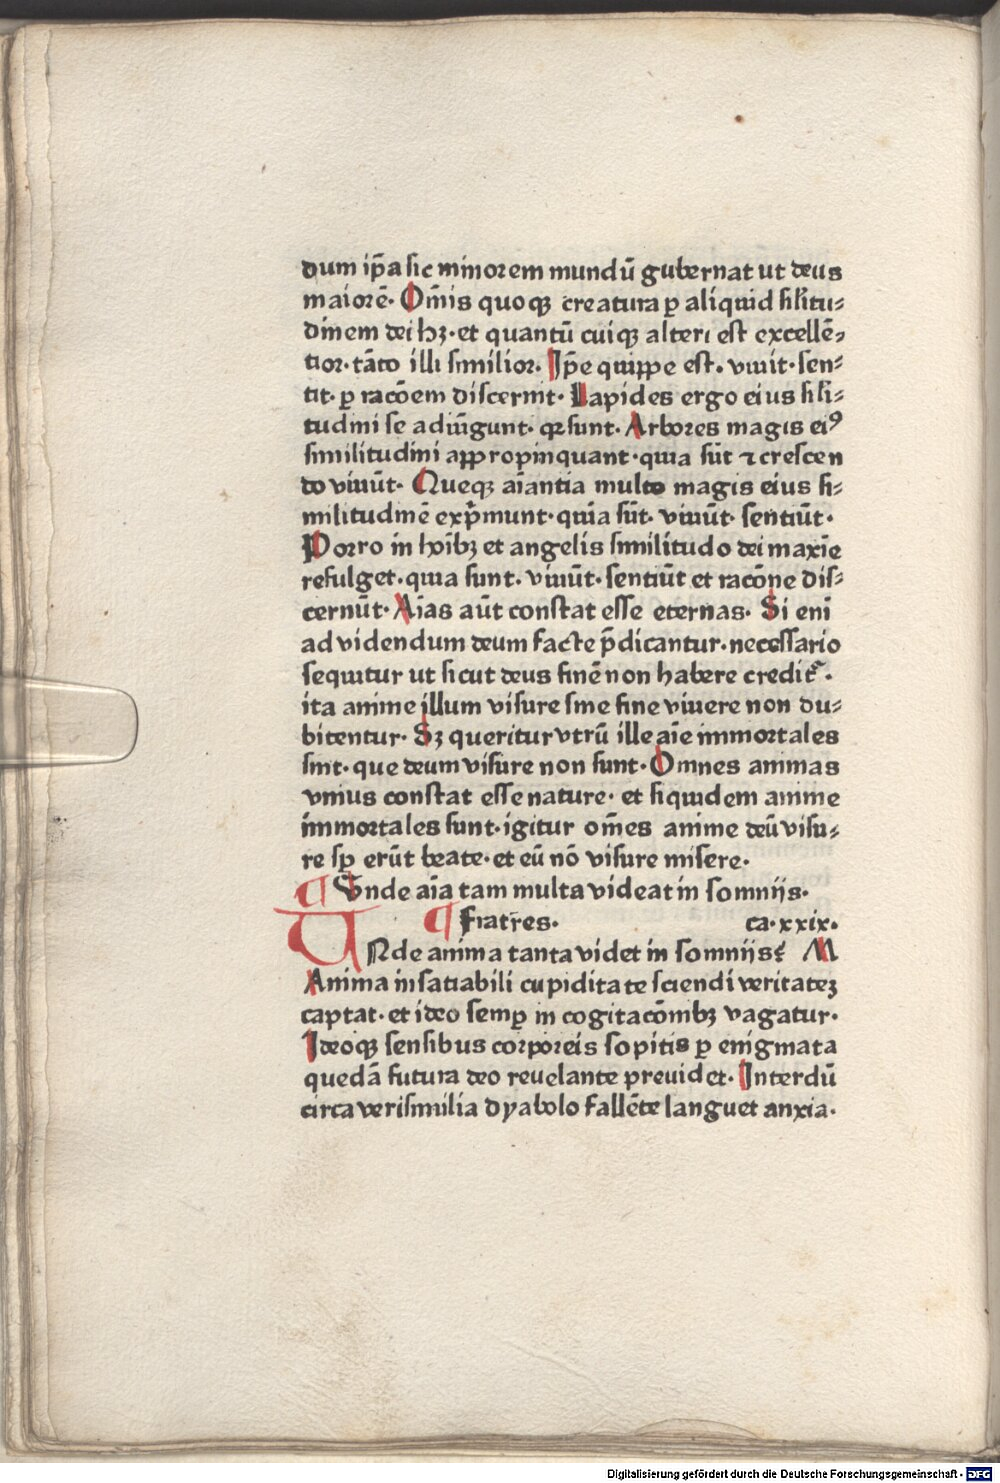 dum ip̄a sic minorem mundū gubernat ut deus
maiorē· Om̄is quoqꝫ creatura ꝑ aliquid silitu⸗
dinem dei hꝫ·et quantū cuiqꝫ alteri est excellē⸗
tior·tāto illi similior· Ip̄e quippe est· viuit·sen⸗
tit·ꝑ racōem discernit· Lapides ergo eius sili⸗
tudini se adiūgunt· qꝛ sunt· Arbores magis eiꝰ
similitudini appropinquant·quia sūt ⁊ crescen
do viuūt· Queqꝫ aīantia multo magis eius si⸗
militudinē exp̄munt·quia sūt· viuūt· sentiūt·
Porro in hoībꝫ et angelis similitudo dei maxīe
refulget·quia sunt· viuūt·sentiūt et racōne dis⸗
cernūt· Aīas aūt constat esse eternas· Si enī
ad videndum deum facte p̄dicantur·necessario
sequitur ut sicut deus finē non habere credit᷑·
ita anime illum visure sine fine viuere non du⸗
bitentur· Sꝫ queritur vtrū ille aīe immortales
sint·que deum visure non sunt· Omnes animas
vnius constat esse nature· et siquidem anime
immortales sunt·igitur om̄es anime deū visu⸗
re sꝑ erūt beate·et eū nō visure misere·
¶ Vnde aīa tam multa videat in somnijs·
¶ Fiat r̄es· ca·xxix·
UNde anima tanta videt in somnijs? M
Anima insatiabili cupiditate sciendi veritateꝫ
captat·et ideo semꝑ in cogitacōmbꝫ vagatur·
Ideoqꝫ sensibus corporeis sopitis ꝑ enigmata
quedā futura deo reuelante preuidet· Interdū
circa verisimilia dyabolo fallēte languet anxia·
Digitalisierung gefördert durch die Deutsche Forschungsgemeinschaft - DFG